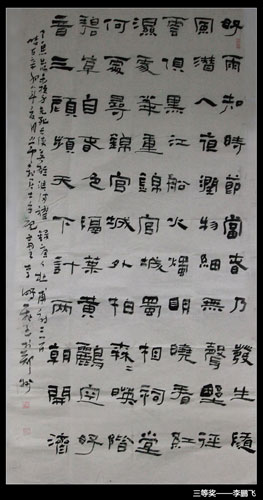 好雨知時節當春乃發生隨
風潛入夜潤物細無聲野徑
雲俱黑江船火燭明曉看紅
濕處華重錦官城蜀相祠堂
何處尋錦官城外柏森森暎階
碧草自春色隔葉黃鸝空好
音三顧頻天下計兩朝開濟
杜甫詩二首
三等奖——李鹏飞